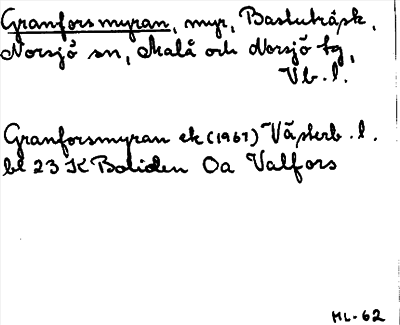 Granforsmyran, myr, Bastuträsk,
Norsjö sn, Malå och Norsjö tg,
Vb. l.
Granforsmyran ek (1961) Västerb. l.
bl 23 K Boliden Oa Valfors
ML-62